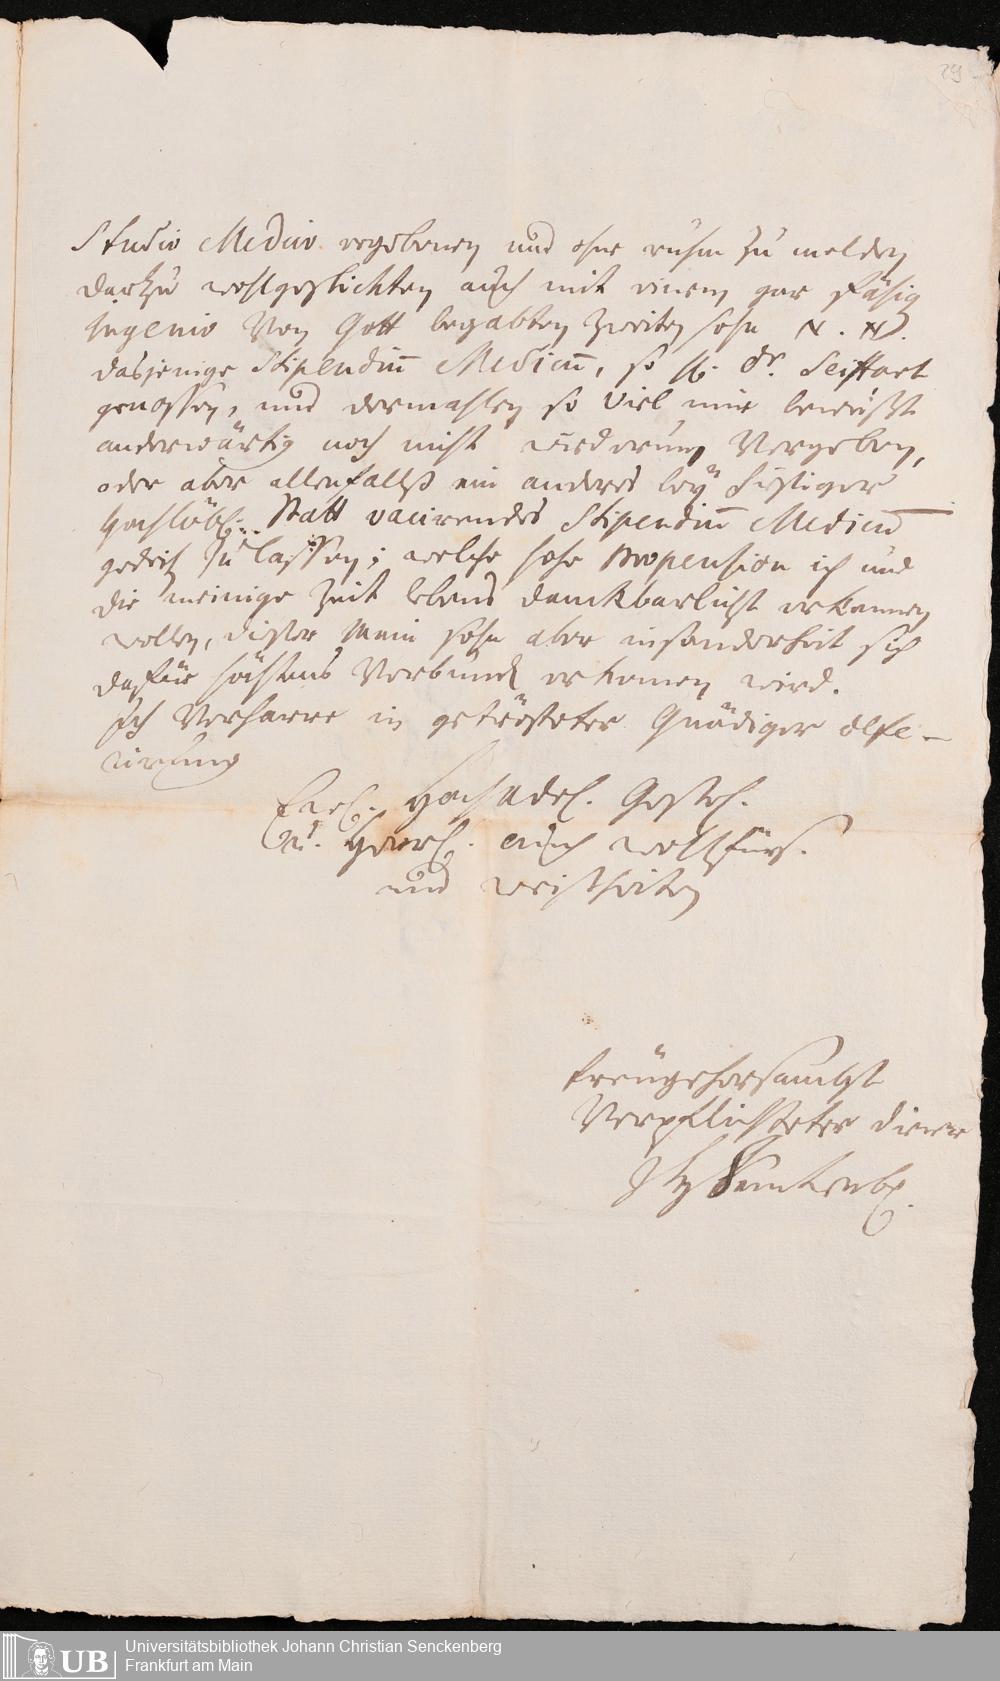 29
Studio Medico ergebenen und ohne ruhm zu melden
darzu wohlgeschickten auch mit einem gar fähig
Ingenio von Gott begabten zweiten sohn N. N.
dasjenige Stipendiū Medicū, so H. Dr. Seiffart
genossen, und dermahlen so viel mir bewußt
anderwärtig noch nicht wiederum vergeben,
oder aber allenfallß ein anderes bey hiesiger
hochlöbl. Statt vacirendes Stipendiū Medicū
zu lassen; welche hohe propension ich und
die meinige Zeit lebens danckbarlichst erkennen
wollen, dießer mein sohn aber insonderheit sich
dafür höchstens verbunden erkennen wird.
Ich verharre in getrösteter Gnädiger defe-
rirung
Hochadel. Gestr.
u. Herrl. auch wohlfürs.
und weisheiten
treugehorsambst
Verpflichteter diener
Senckenbg.
UB
Universitätsbibliothek Johann Christian Senckenberg
Frankfurt am Main